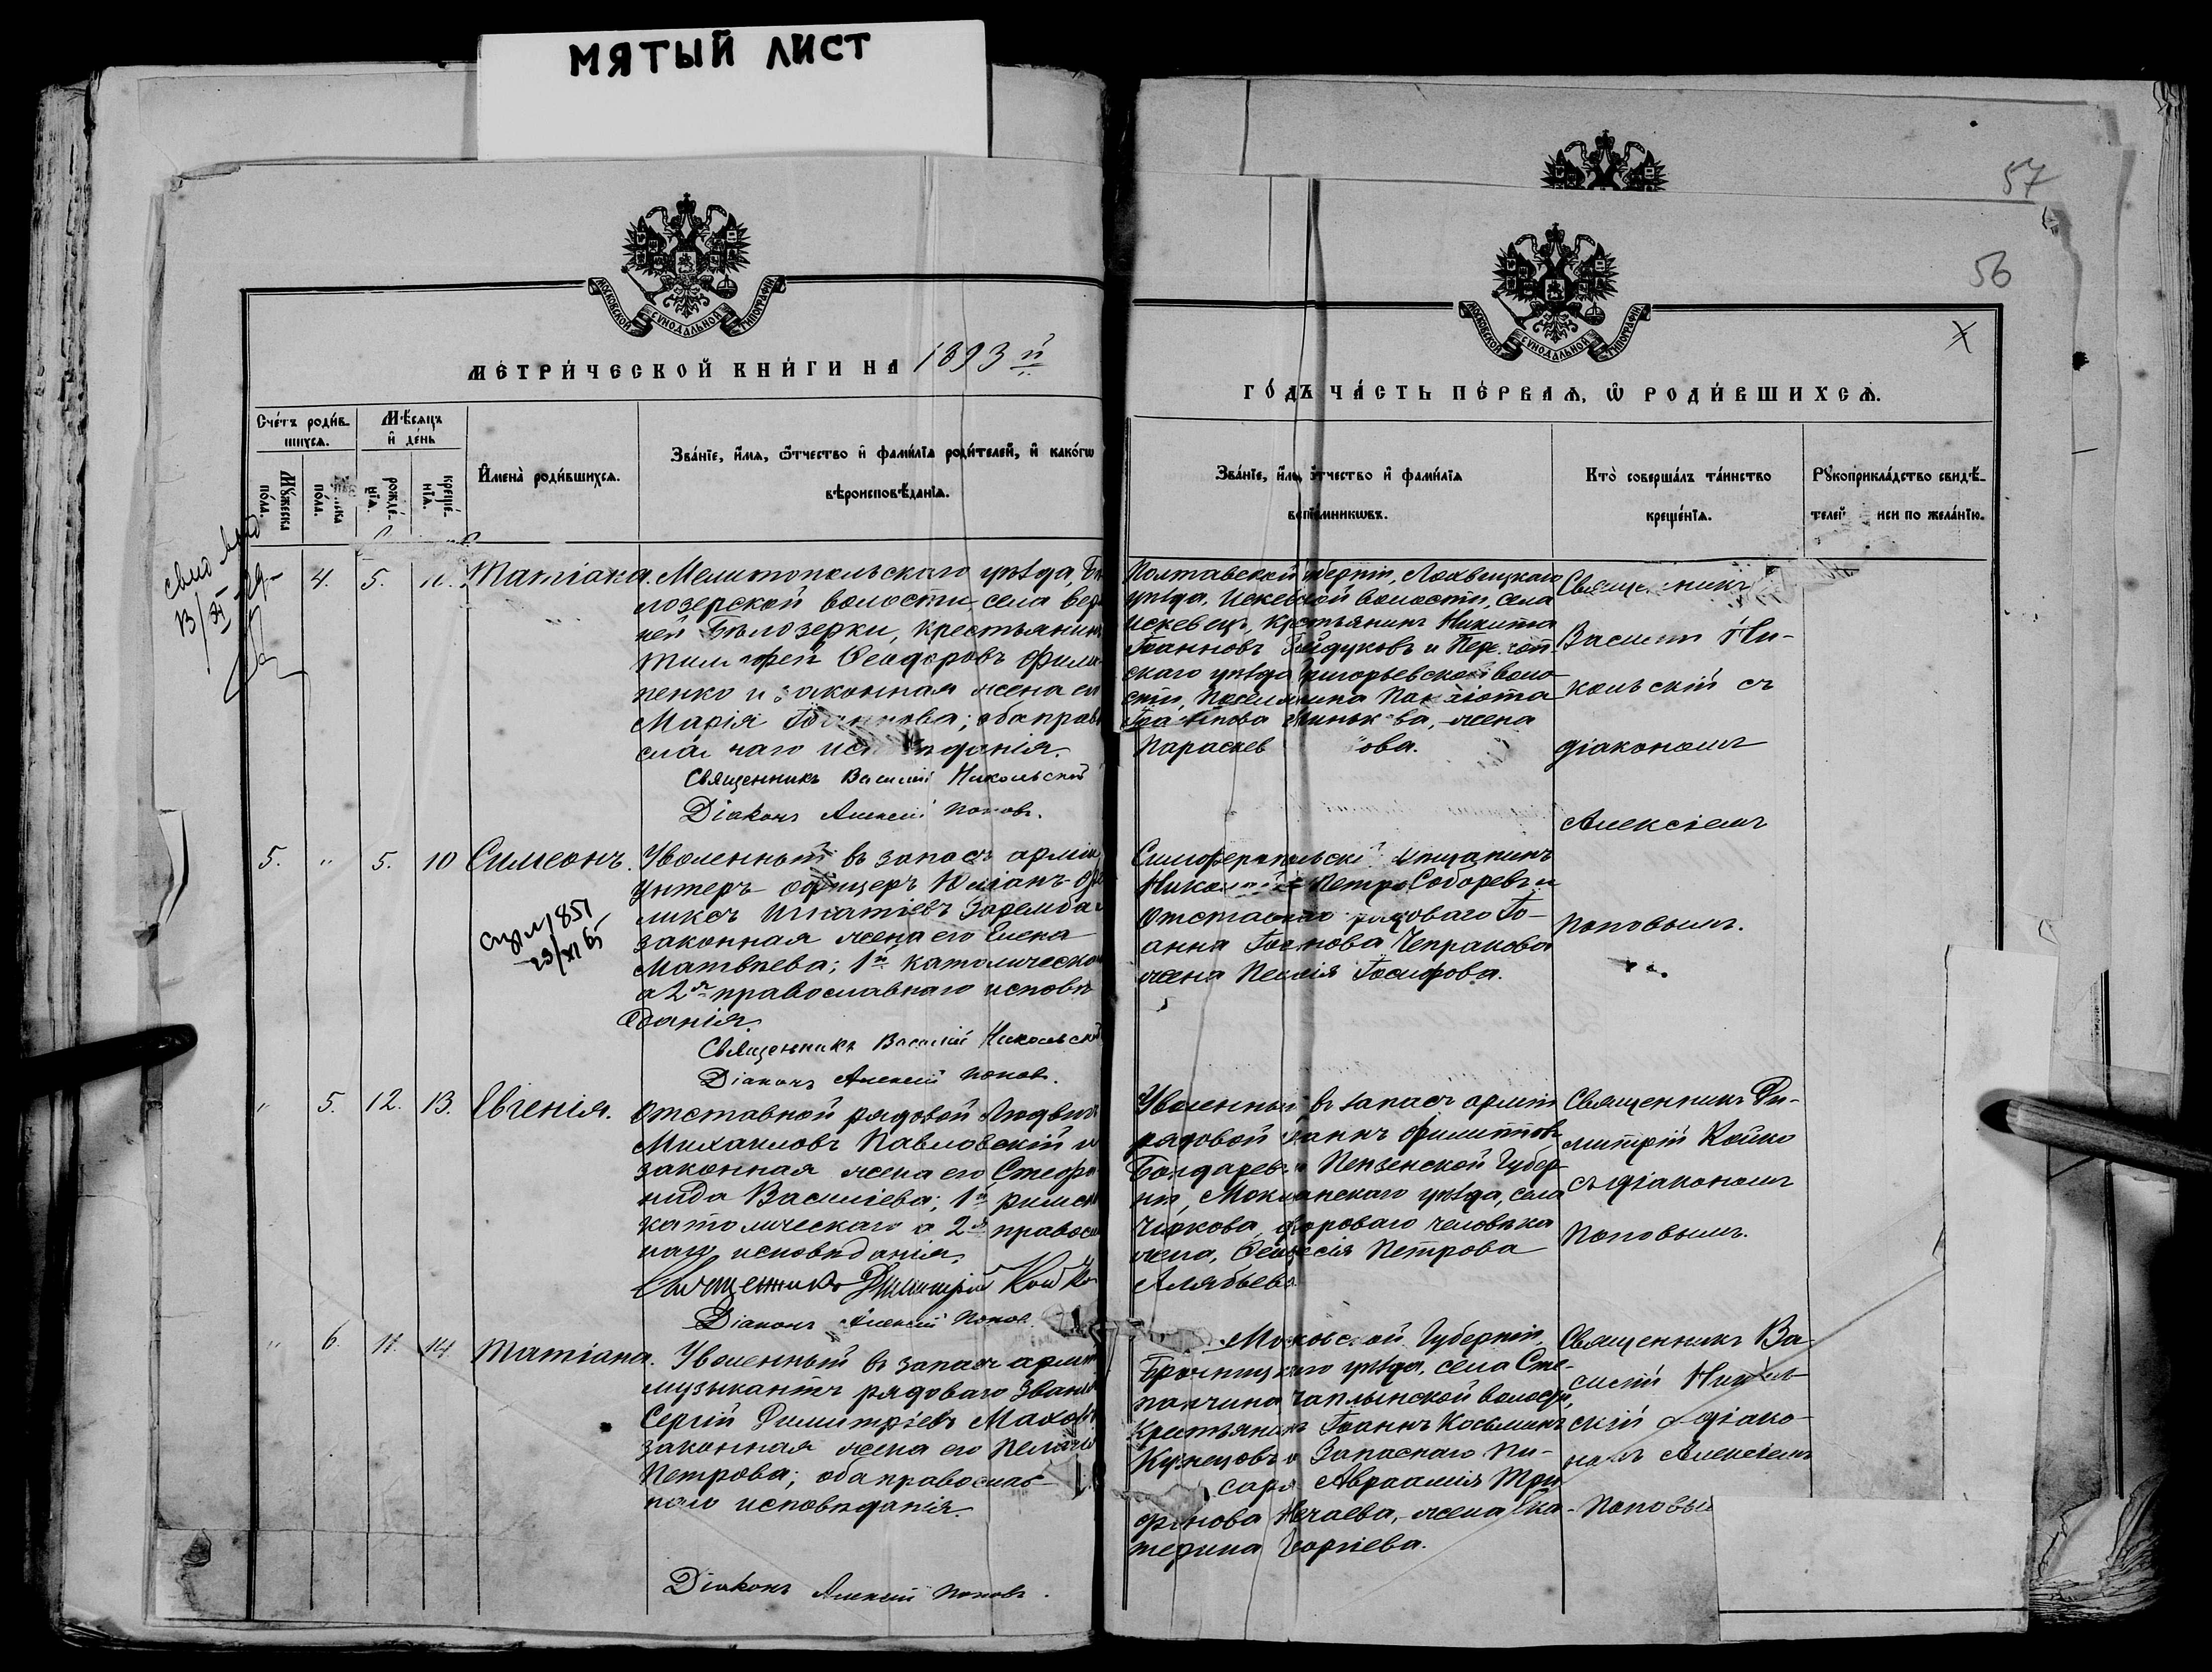 МЯТЫЙ ЛИСТ
57
56
МОСКОВСКОЙ СѴНОДАЛЬНОЙ ТИПОГРАФІИ
МОСКОВСКОЙ СѴНОДАЛЬНОЙ ТИПОГРАФІИ
МЕТРИ́ЧЕСКОЙ КНИ́ГИ НА 1893 й
ГО́ДЪ ЧА́СТЬ ПЕ́РВАѦ, Ѿ РОДИ́ВШИХСѦ.
Сче́тъ роди́в-
шихсѧ.
Мꙋ́жеска
по́ла.
по́ла.
Мѣ́сѧцъ
и҆ де́нь
рожде́-
нїѧ.
креще́-
нїѧ.
И҆мена̀ роди́вшихсѧ.
Зва́нїе, и҆́мѧ, ѻ҆́тчество и҆ фами́лїѧ роди́телей, и҆ како́гѡ
вѣроисповѣ́данїѧ.
Зва́нїе, и҆́мѧ, ѻ҆́тчество и҆ фами́лїѧ
воспрїе́мникѡвъ.
Кто̀ соверша́лъ та́инство
креще́нїѧ.
Рꙋкоприкла́дство свидѣ́-
телей
иси по жела́нїю.
4. 5. Татіана. Мелитопольскаго уѣзда, Бѣ-
лозерской волости, села Верх-
ней Бѣлозерки, крестьянинъ
Ѳеодоровъ Фили-
пенко и законная жена его
Марія Іоаннова; оба прав
Священникъ Василій Никольскій
Діаконъ Алексій Поповъ.
Полтавской губерніи, Лохвицкаго
уѣзда, волости, села
крестьянинъ Никита
Іоанновъ Гайдуковъ и
скаго уѣзда Григорьевской воло-
сти,
жена
Параскев ова.
Священникъ
Василій Ни-
кольскій съ
діакономъ
Алексіемъ
Поповымъ.
5. " 5. 10 Симеонъ. Уволенный въ запасъ арміи
унтеръ-офицеръ Юліанъ-Фе
ликсъ Игнатіевъ Заремба и
законная жена его Елена
Матвѣева; 1й католическаго
а 2я православнаго исповѣ
данія.
Священникъ Василій Никольскій
Діаконъ Алексій Поповъ.
1851
23/XI 65
Симферопольскій мѣщанинъ
Николай Петро Соборевъ и
Отставнаго рядоваго Іо-
анна Іоаннова Чепракова
жена Пелагія Іосифова.
" 5. 12. 13. Евгенія. Отставной рядовой Людвигъ
Михаиловъ Павловскій и
законная жена его Стефа
нида Василіева; 1й римско
католическаго а 2я правосл
наго исповѣданія.
Священникъ Димитрій Койко
Діаконъ Алексій Поповъ.
Уволенный въ запасъ арміи
рядовой Іоаннъ Филипповъ
Бондаревъ и Пензенской Губер-
ніи, Мокшанскаго уѣзда, села
Чіркова, двороваго человѣка
жена, Ѳеодосія Петрова
Алябьева
Священникъ Ди-
митрій Койко
съ діакономъ
Поповымъ.
" 6. 11. 14 Татіана. Уволенный въ запасъ арміи
музыкантъ рядоваго званія
Сергій Димитріевъ Маховъ
законная жена его Пелагія
Петрова; оба православ-
наго исповѣданія.
Діаконъ Алексій Поповъ.
Московской Губерніи,
Бронницкаго уѣзда, села Сте-
панчина Чаплынской волости,
крестьянинъ Іоаннъ Косьминъ
Кузнецовъ и Запаснаго Пи-
саря Авраамія Три
фонова Нечаева, жена Ека-
терина Георгіева.
Священникъ Ва-
силій Николь-
скій съ діако-
номъ Алексіемъ
Поповы